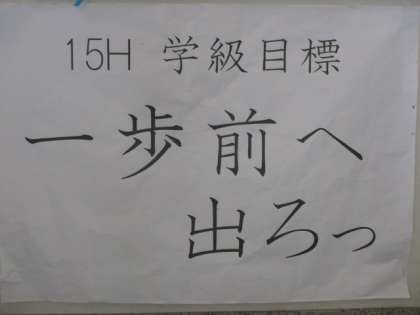 15H 学級目標
一歩前へ
出ろっ